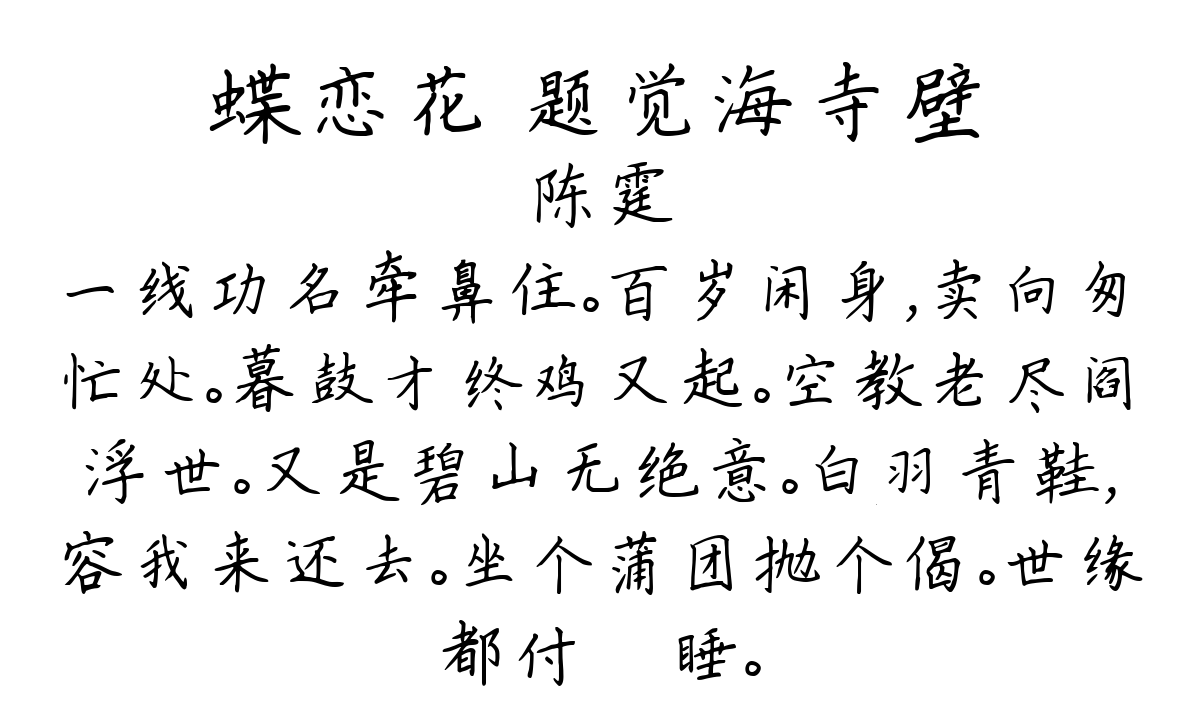 蝶恋花 题觉海寺壁
陈霆
一线功名牵鼻住。百岁闲身,卖向匆
忙处。暮鼓才终鸡又起。空教老尽阎
浮世。又是碧山无绝意。白羽青鞋,
容我来还去。坐个蒲团抛个偈。世缘
都付 睡。